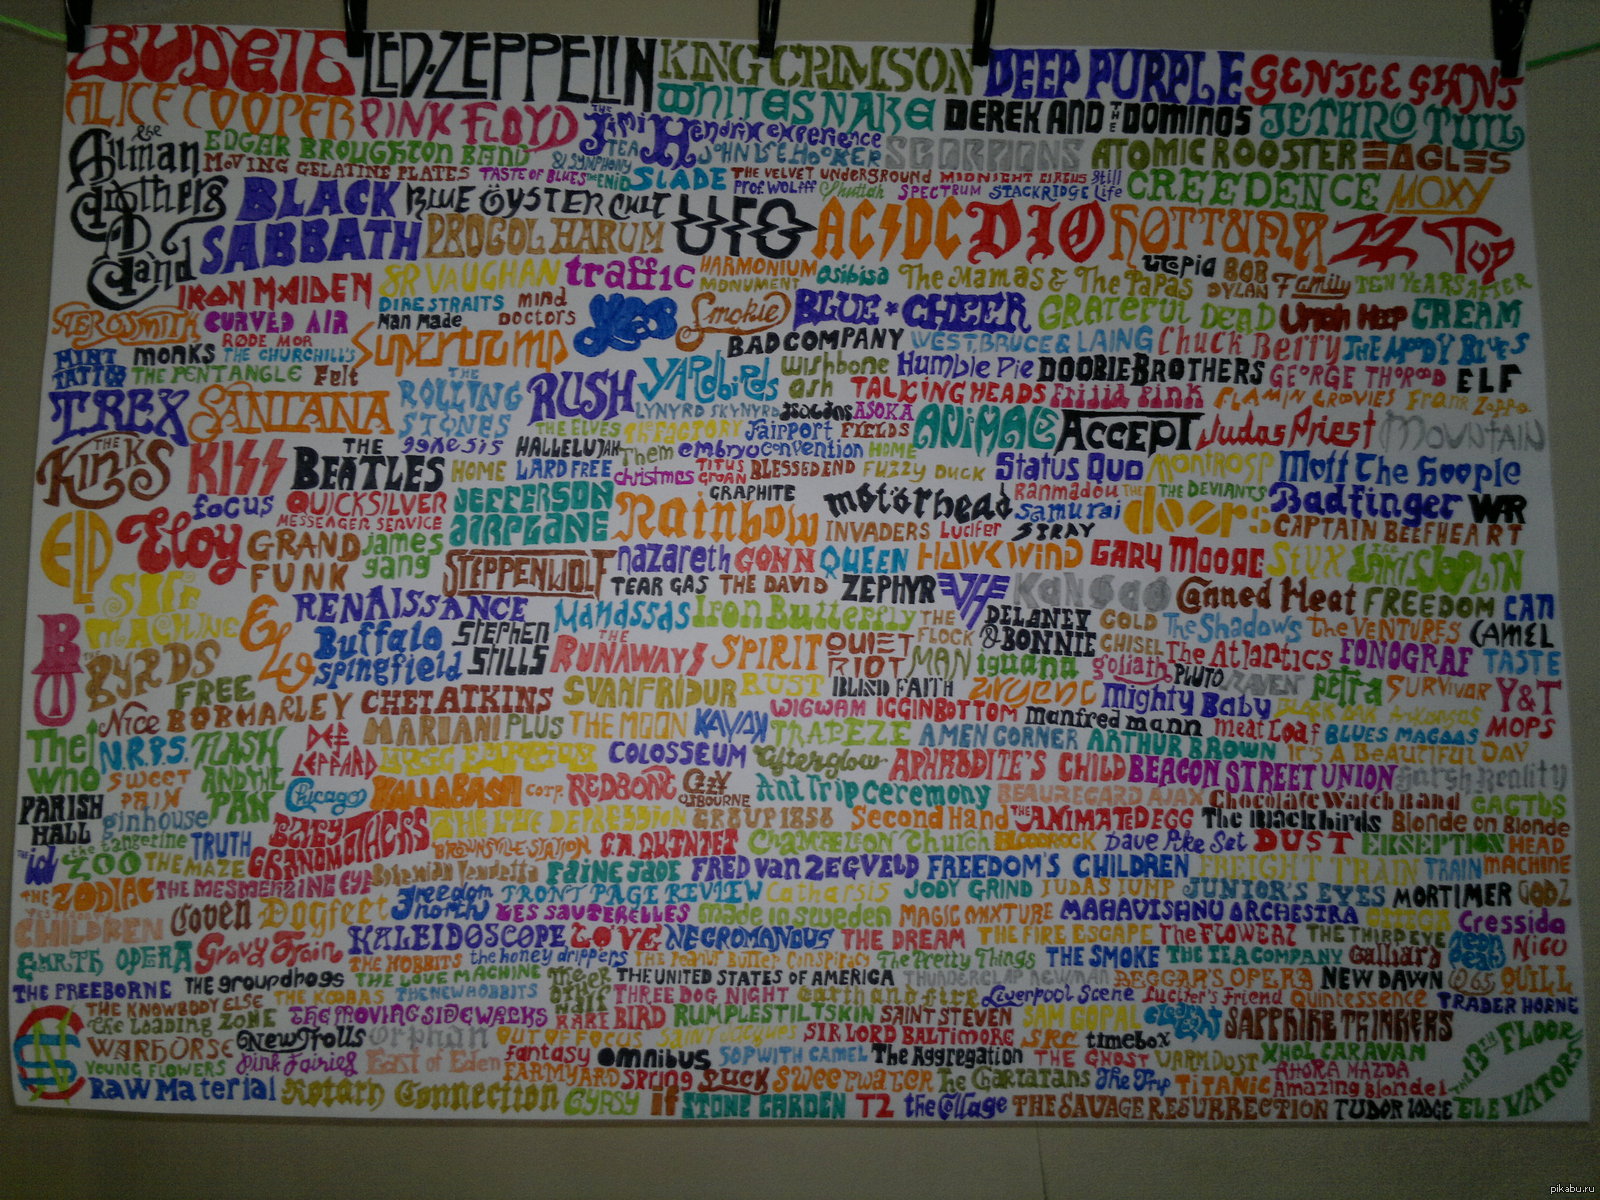 BUDGIE LED-ZEPPELIN KING CRIMSON DEEP PURPLE GENTLE GIANT
ALICE COOPER PINK FLOYD THE JIMI HENDRIX EXPERIENCE WHITESNAKE DEREK AND THE DOMINOS JETHRO TULL
THE ALLMAN BROTHERS BAND EDGAR BROUGHTON BAND TEA & SYMPHONY JOHN LEE HOOKER SCORPIONS ATOMIC ROOSTER EAGLES
MOVING GELATINE PLATES TASTE OF BLUES THE ENID SLADE THE VELVET UNDERGROUND MIDNIGHT CIRCUS Still
PROF. WOLFFF SPECTRUM STACKRIDGE Life CREEDENCE MOXY
BLACK SABBATH BLUE ÖYSTER CULT PROCOL HARUM UFO AC/DC DIO HOT TUNA ZZ TOP
IRON MAIDEN SR VAUGHAN traffic HARMONIUM MONUMENT osibisa The Mamas & The Papas utopia BOB DYLAN Family TEN YEARS AFTER
AEROSMITH CURVED AIR DIRE STRAITS Man Made mind Doctors Yes Smokie BLUE * CHEER GRATEFUL DEAD URIAH HEEP CREAM
MINT TATTOO monks RØDE MOR THE CHURCHILL'S Supertramp BAD COMPANY WEST BRUCE & LAING Chuck Berry THE MOODY BLUES
THE PENTANGLE Felt YARDBIRDS wishbone ash Humble Pie DOOBIE BROTHERS GEORGE THOROGOOD ELF
T.REX SANTANA THE ROLLING STONES RUSH LYNYRD SKYNYRD ASOKA TALKING HEADS Frijid Pink FLAMIN GROOVIES Frank Zappa
THE ELVES The FACTORY Fairport convention FIELDS ANIMALS ACCEPT Judas Priest MOUNTAIN
THE KINKS KISS THE BEATLES genesis HALLELUJAH Them embryo HOME
HOME LARD FREE christmas TITUS GROAN BLESSED END FUZZY DUCK Status Quo MONTROSE Mott The Hoople
focus QUICKSILVER MESSENGER SERVICE JEFFERSON AIRPLANE Rainbow GRAPHITE motörhead Ranmadou Samurai THE DEVIANTS THE doors Badfinger WAR
ELP Eloy GRAND FUNK james gang INVADERS Lucifer STRAY CAPTAIN BEEFHEART
STEPPENWOLF nazareth GONN QUEEN HAWKWIND GARY MOORE STYX JANIS JOPLIN
TEAR GAS THE DAVID ZEPHYR VH KANSAS Canned Heat FREEDOM CAN
SOFT MACHINE ELO RENAISSANCE Manassas Iron Butterfly THE FLOCK DELANEY & BONNIE COLD CHISEL The Shadows The VENTURES CAMEL
THE BYRDS Buffalo springfield STEPHEN STILLS THE RUNAWAYS SPIRIT QUIET RIOT MAN iguana goliath The Atlantics FONOGRAF TASTE
FREE CHET ATKINS SVANFRIDUR RUST BLIND FAITH ARGENT PLUTO RAVEN petra SURVIVOR Y&T
Nice BOB MARLEY MARIANI PLUS THE MOON KAYAK WIGWAM IGGINBOTTOM manfred mann Mighty Baby MOPS
The who N.R.P.S. FLASH AND THE PAN DEF LEPPARD COLOSSEUM TRAPEZE AMEN CORNER ARTHUR BROWN meat Loaf BLUES MAGOOS IT'S A BEAUTIFUL DAY
SWEET PAIN Chicago KALLABASH CORP. REDBONE OZZY OSBOURNE Afterglow APHRODITE'S CHILD BEACON STREET UNION HARSH REALITY
PARISH HALL ginhouse Ant Trip ceremony BEAUREGARD AJAX Chocolate Watch Band CACTUS
THE id the tangerine ZOO TRUTH BABY GRANDMOTHERS THE LOVE DEPRESSION GROUP 1850 Second Hand THE ANIMATED EGG The Blackbirds Blonde on Blonde
THE MAZE BROWNSVILLE-STATION C.A. QUINTET CHAMELEON Church BLOODROCK Dave Pike Set DUST EKSEPTION HEAD MACHINE
THE ZODIAC THE MESMERIZING EYE Bohemian Vendetta FAINE JADE FRED van ZEGVELD FREEDOM'S CHILDREN FREIGHT TRAIN TRAIN
YESTERDAY'S CHILDREN Coven Dogfeet freedom north FRONT PAGE REVIEW Catharsis JODY GRIND JUDAS JUMP JUNIOR'S EYES MORTIMER GODZ
LES SAUTERELLES made in sweden MAGIC MIXTURE MAHAVISHNU ORCHESTRA Cressida
EARTH OPERA Gravy Train KALEIDOSCOPE LOVE NECROMANDUS THE DREAM THE FIRE ESCAPE The FLOWERZ THE THIRD EYE NICO
THE HOBBITS the honey drippers THE Peanut Butter Conspiracy The Pretty Things THE SMOKE THE TEA COMPANY Galliard
THE FREEBORNE THE groundhogs THE LOVE MACHINE THE other half THE UNITED STATES OF AMERICA THUNDERCLAP NEWMAN BEGGAR'S OPERA NEW DAWN QUILL
THE KNOWBODY ELSE THE KOOBAS THE NEW HOBBITS THREE DOG NIGHT earth and fire Liverpool Scene Lucifer's Friend Quintessence TRADER HORNE
The Loading ZONE THE MOVING SIDEWALKS RARE BIRD RUMPLESTILTSKIN SAINT STEVEN SAM GOPAL CLEAR LIGHT SAPPHIRE THINKERS
WARHORSE New Trolls orphan OUT OF FOCUS SAINT JACQUES SIR LORD BALTIMORE SRC timebox THE 13TH FLOOR ELEVATORS
YOUNG FLOWERS Pink Fairies East of Eden fantasy omnibus SOPWITH CAMEL The Aggregation THE GHOST WARM DUST XHOL CARAVAN
FARMYARD SPRING Puck SWEETWATER The Charlatans The Trip TITANIC AHORA MAZDA Amazing Blondel
Raw Material Rotary Connection GYPSY IF STONE GARDEN T2 the Collage THE SAVAGE RESURRECTION TUDOR LODGE
pikabu.ru